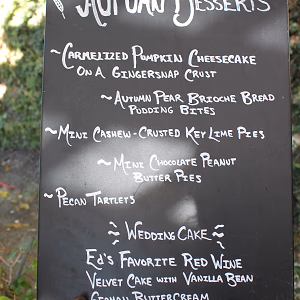 Autumn Desserts
~Carmelized Pumpkin Cheesecake
on a Gingersnap Crust
~Autumn Pear Brioche Bread
Pudding Bites
~Mini Cashew-Crusted Key Lime Pies
~Mini Chocolate Peanut
Butter Pies
~Pecan Tartlets
Wedding Cake
Ed's Favorite Red Wine
Velvet Cake with Vanilla Bean
Buttercream